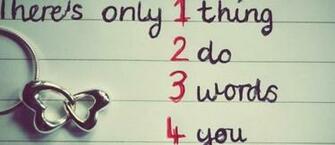 There's only 1 thing
2 do
3 words
4 you